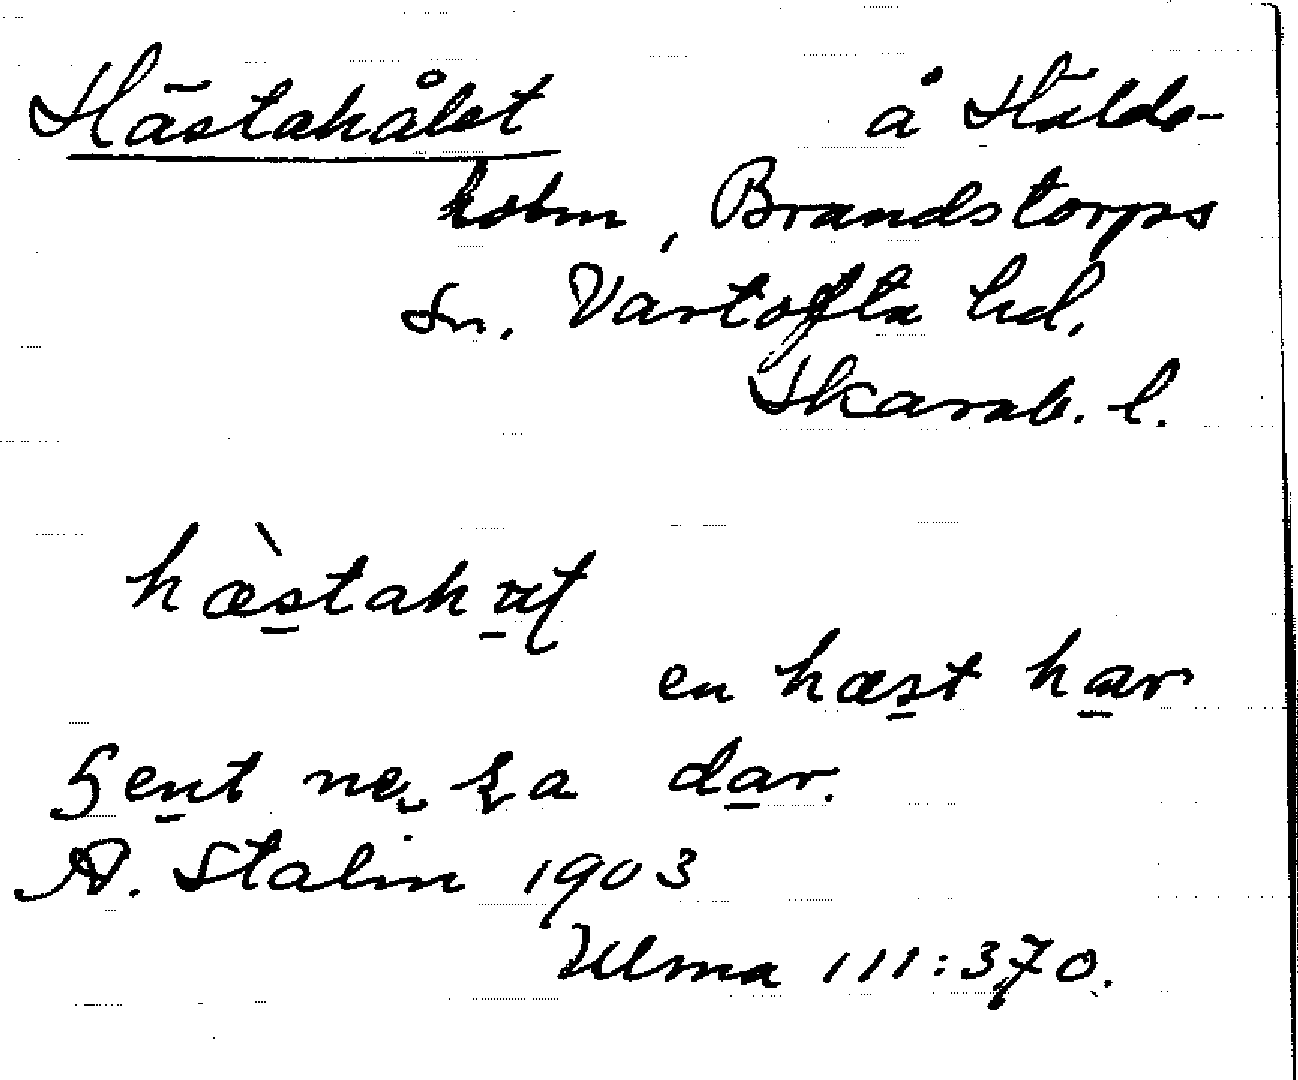 Hästahålet å Hälds-
holm, Brandstorps
sn. Vartofta hd.
Skarab. l.
hæ̀stah
en hæst har
dar.
A. Stalin 1903
Ulma 111:370.